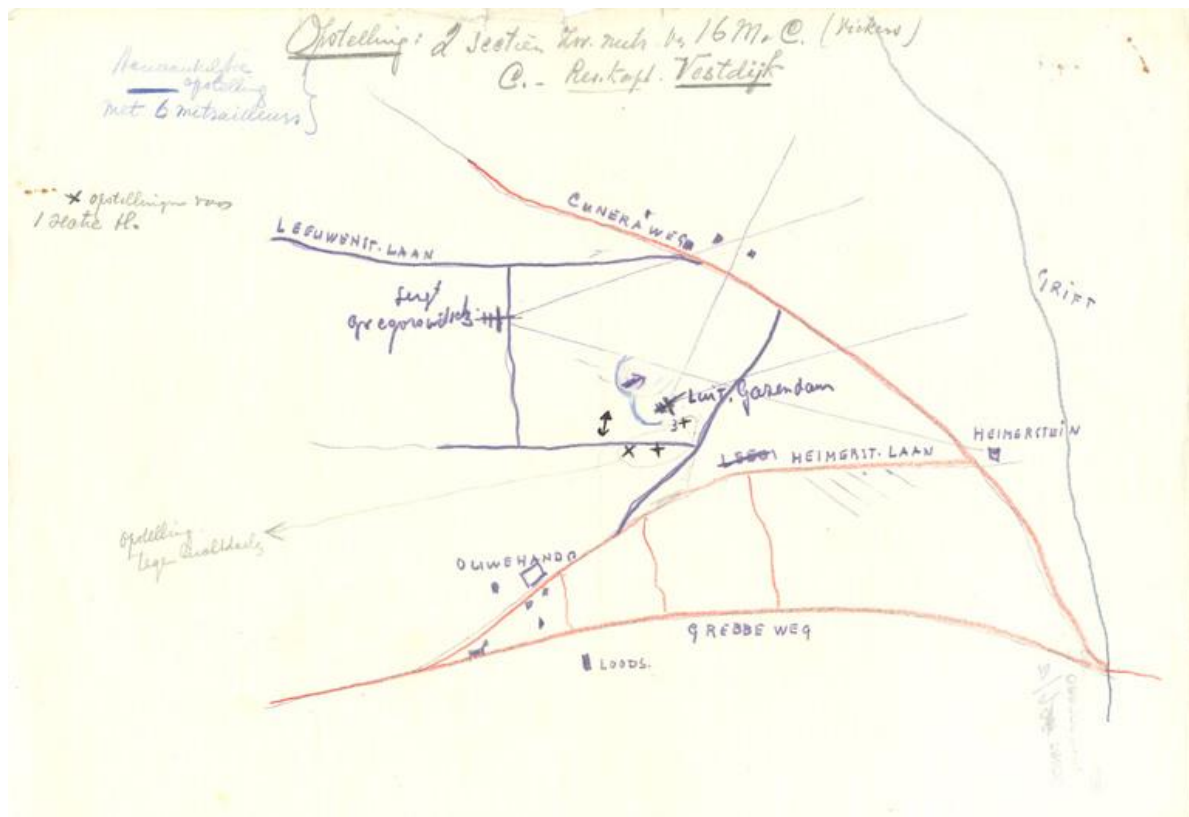 Opstelling: 2 Sectiën Zw. mitr. v. 16 M.C. (Vickers)
C.- Res. Kapt. Vestdijk
Aanvankelijke
opstelling
met 6 mitrailleurs
x opstellingen voor
1 sectie M.
CUNERAWEG
LEEUWENST. LAAN
GRIFT
Sergt
Gregorowitsch 3
Luit. Gazendam
3+
HEIMERSTEIN
HEIMERST. LAAN
opstelling
tegen
OUWEHAND
GREBBE WEG
LOODS.